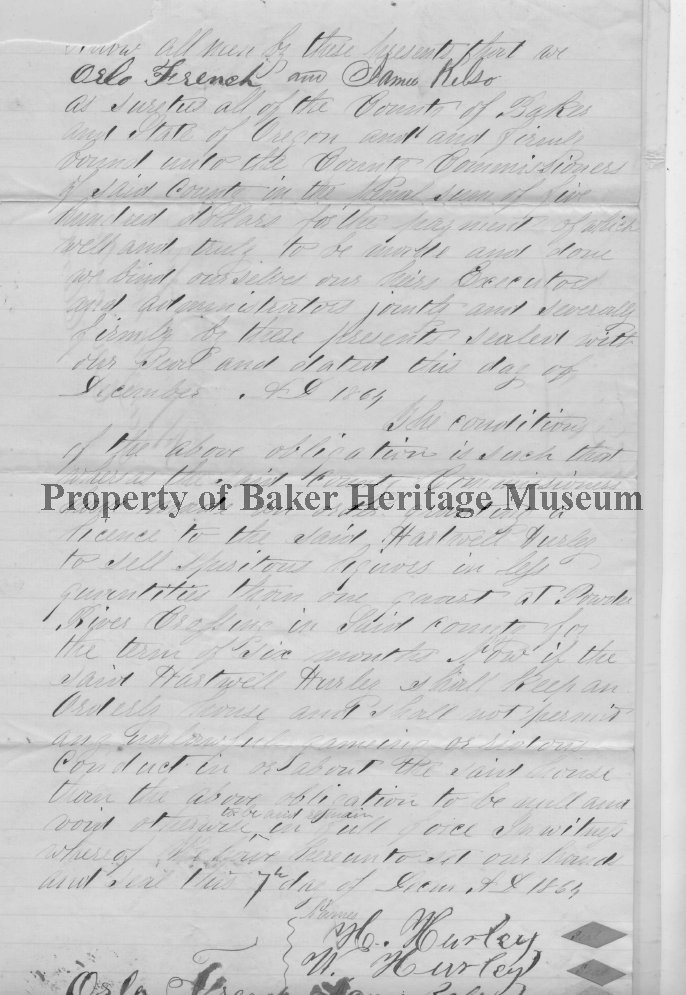 Know all men by these presents that we
Orlo French and James Kelso
as sureties all of the County of Baker
and State of Oregon and firmly
bound unto the County Commissioners
of said County in the Penal sum of five
hundred dollars to the payment of which
well and truly to be made and done
we bind ourselves our heirs Executors
and administrators jointly and severally
firmly by these presents sealed with
our Seal and dated this day of
December A D 1864
The condition
of the above obligation is such that
whereas the said County Commissioners
Property of Baker Heritage Museum
licence to the said Hartwell Hurley
to sell spiritous liquors in less
quantities than one quart at Powder
River Crossing in Said county for
the term of Six months Now if the
said Hartwell Hurley shall Keep an
Orderly house and shall not permit
any unlawful gameing or riotous
Conduct in or about the said House
then the above obligation to be null and
void otherwise to be and remain in full force In witness
whereof We have hereunto set our hands
and seal this 7th day of Decm A D 1864
Names
H. Hurley
W. Hurley
Orlo French James Kelso